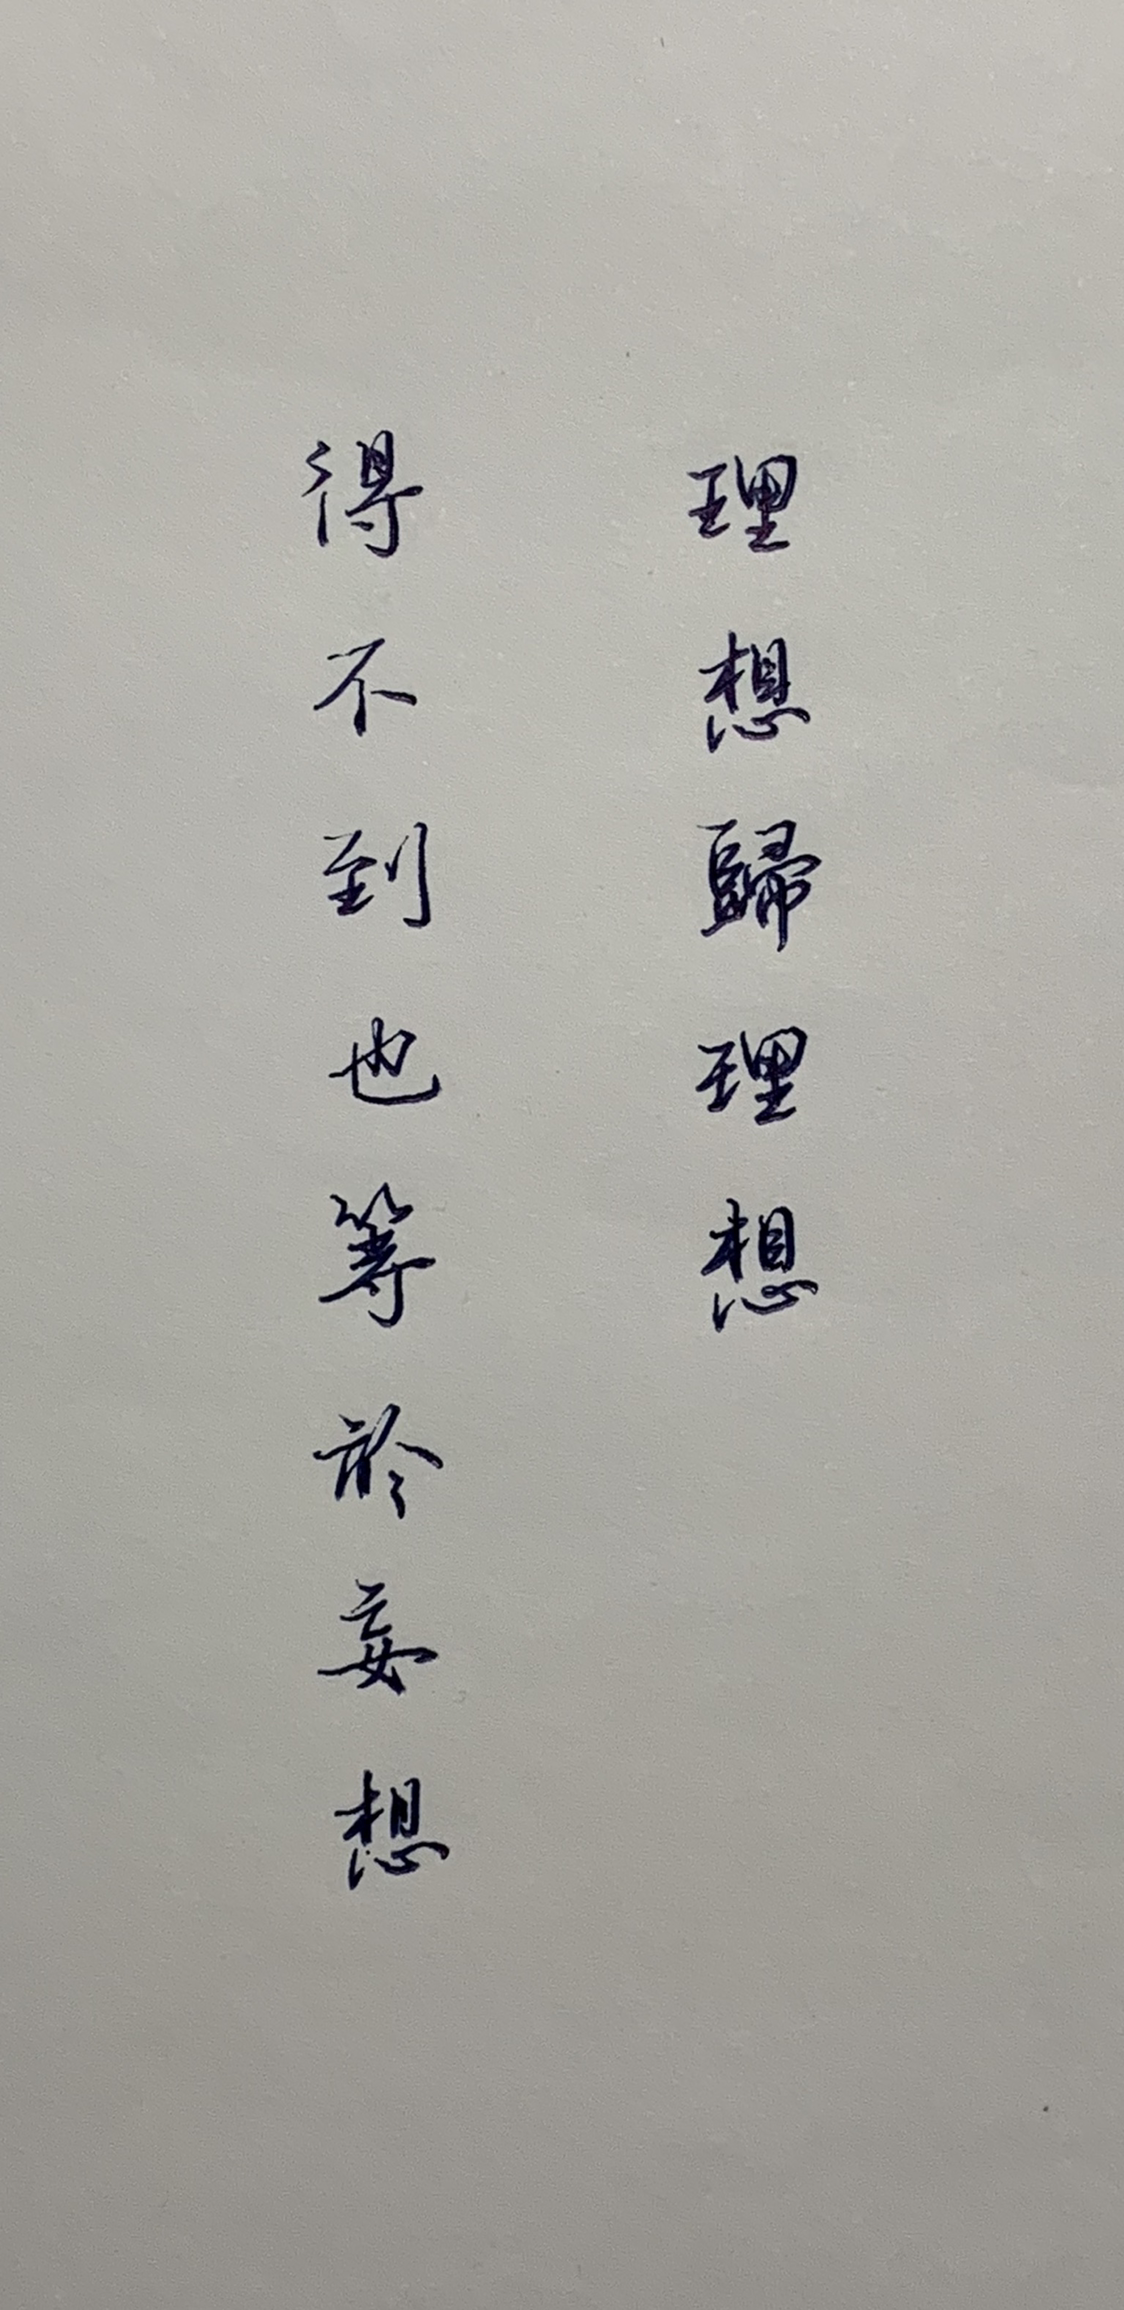 理想歸理想
得不到也等於妄想